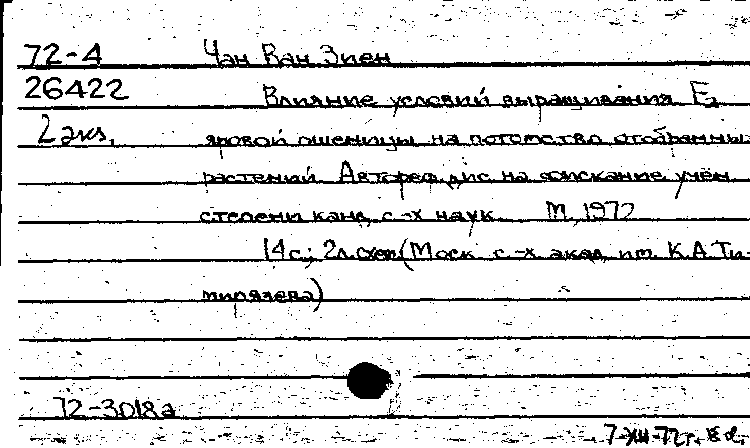 72-4 Чан Ван Зиен
26422 Влияние условий выращивания F2
2 экз. яровой пшеницы на потомство отобранных
растений. Автореф. дис. на соискание учён.
степени канд. с-х наук. М, 1972
14 с.; 2 л. схем (Моск. с-х. акад. им. К.А. Ти-
мирязева)
72-3018а
7-XII-72г.